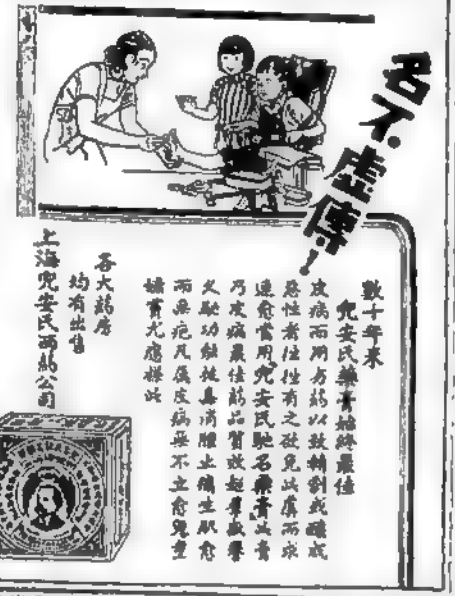 名不虛傳！
數十年來
兜安氏藥膏始終最佳
皮病而用劣藥以致輕則成癢或
惡性者往往有之欲免此虞而求
速愈當用兜安氏馳名藥膏此膏
乃皮病最佳藥品質效超羣故譽
又馳功能殺毒消腫止痛生肌愈
而無疤凡屬皮病無不立愈兒童
嬌膚尤應擇此
各大藥房
均有出售
上海兜安氏西藥公司